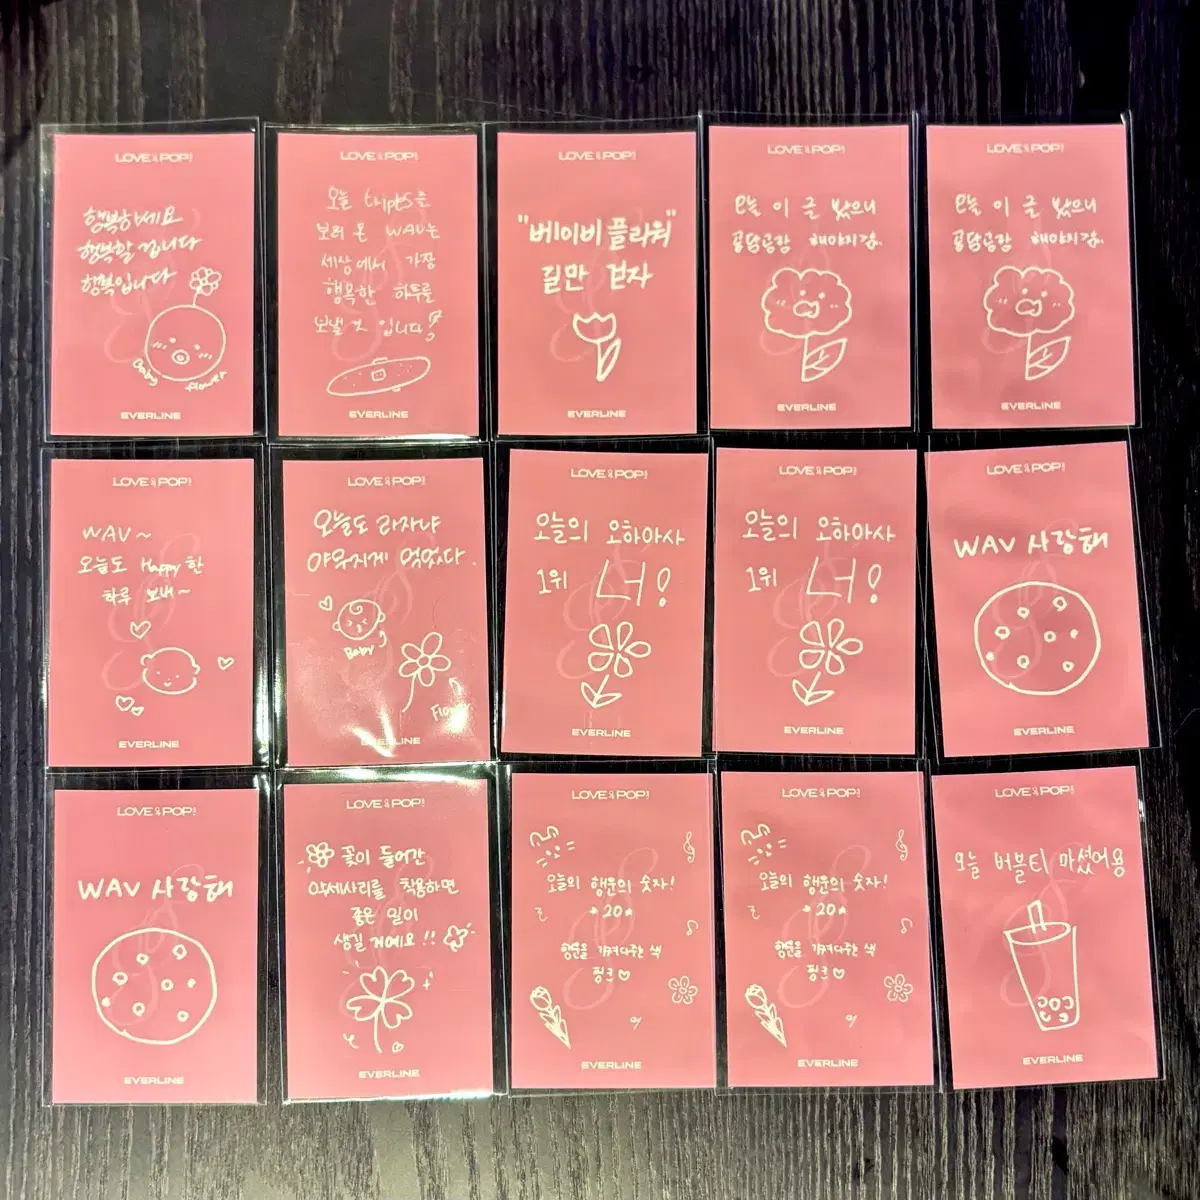 LOVE & POP
행복하세요
행복할 겁니다
행복입니다
Baby flower
EVERLINE
LOVE & POP
오늘 tripleS를
보러 온 WAV는
세상에서 가장
행복한 하루를
보낼 것 입니다
EVERLINE
LOVE & POP
"베이비 플라워"
길만 걷자
EVERLINE
LOVE & POP
오늘 이 글 봤으니
공담곰담 해야지감.
EVERLINE
LOVE & POP
오늘 이 글 봤으니
공담곰담 해야지감.
EVERLINE
LOVE & POP
WAV ~
오늘도 Happy 한
하루 보내~
EVERLINE
LOVE & POP
오늘도 라자냐
야무지게 먹었다.
Baby
Flower
EVERLINE
LOVE & POP
오늘의 오하아사
1위 너!
EVERLINE
LOVE & POP
오늘의 오하아사
1위 너!
EVERLINE
LOVE & POP
WAV 사랑해
EVERLINE
LOVE & POP
WAV 사랑해
EVERLINE
LOVE & POP
꽃이 들어간
악세사리를 착용하면
좋은 일이
생길 거예요!!
EVERLINE
LOVE & POP
오늘의 행운의 숫자!
20
행운을 가져다주는 색
핑크♡
EVERLINE
LOVE & POP
오늘의 행운의 숫자!
20
행운을 가져다주는 색
핑크♡
EVERLINE
LOVE & POP
오늘 버블티 마셨어용
EVERLINE